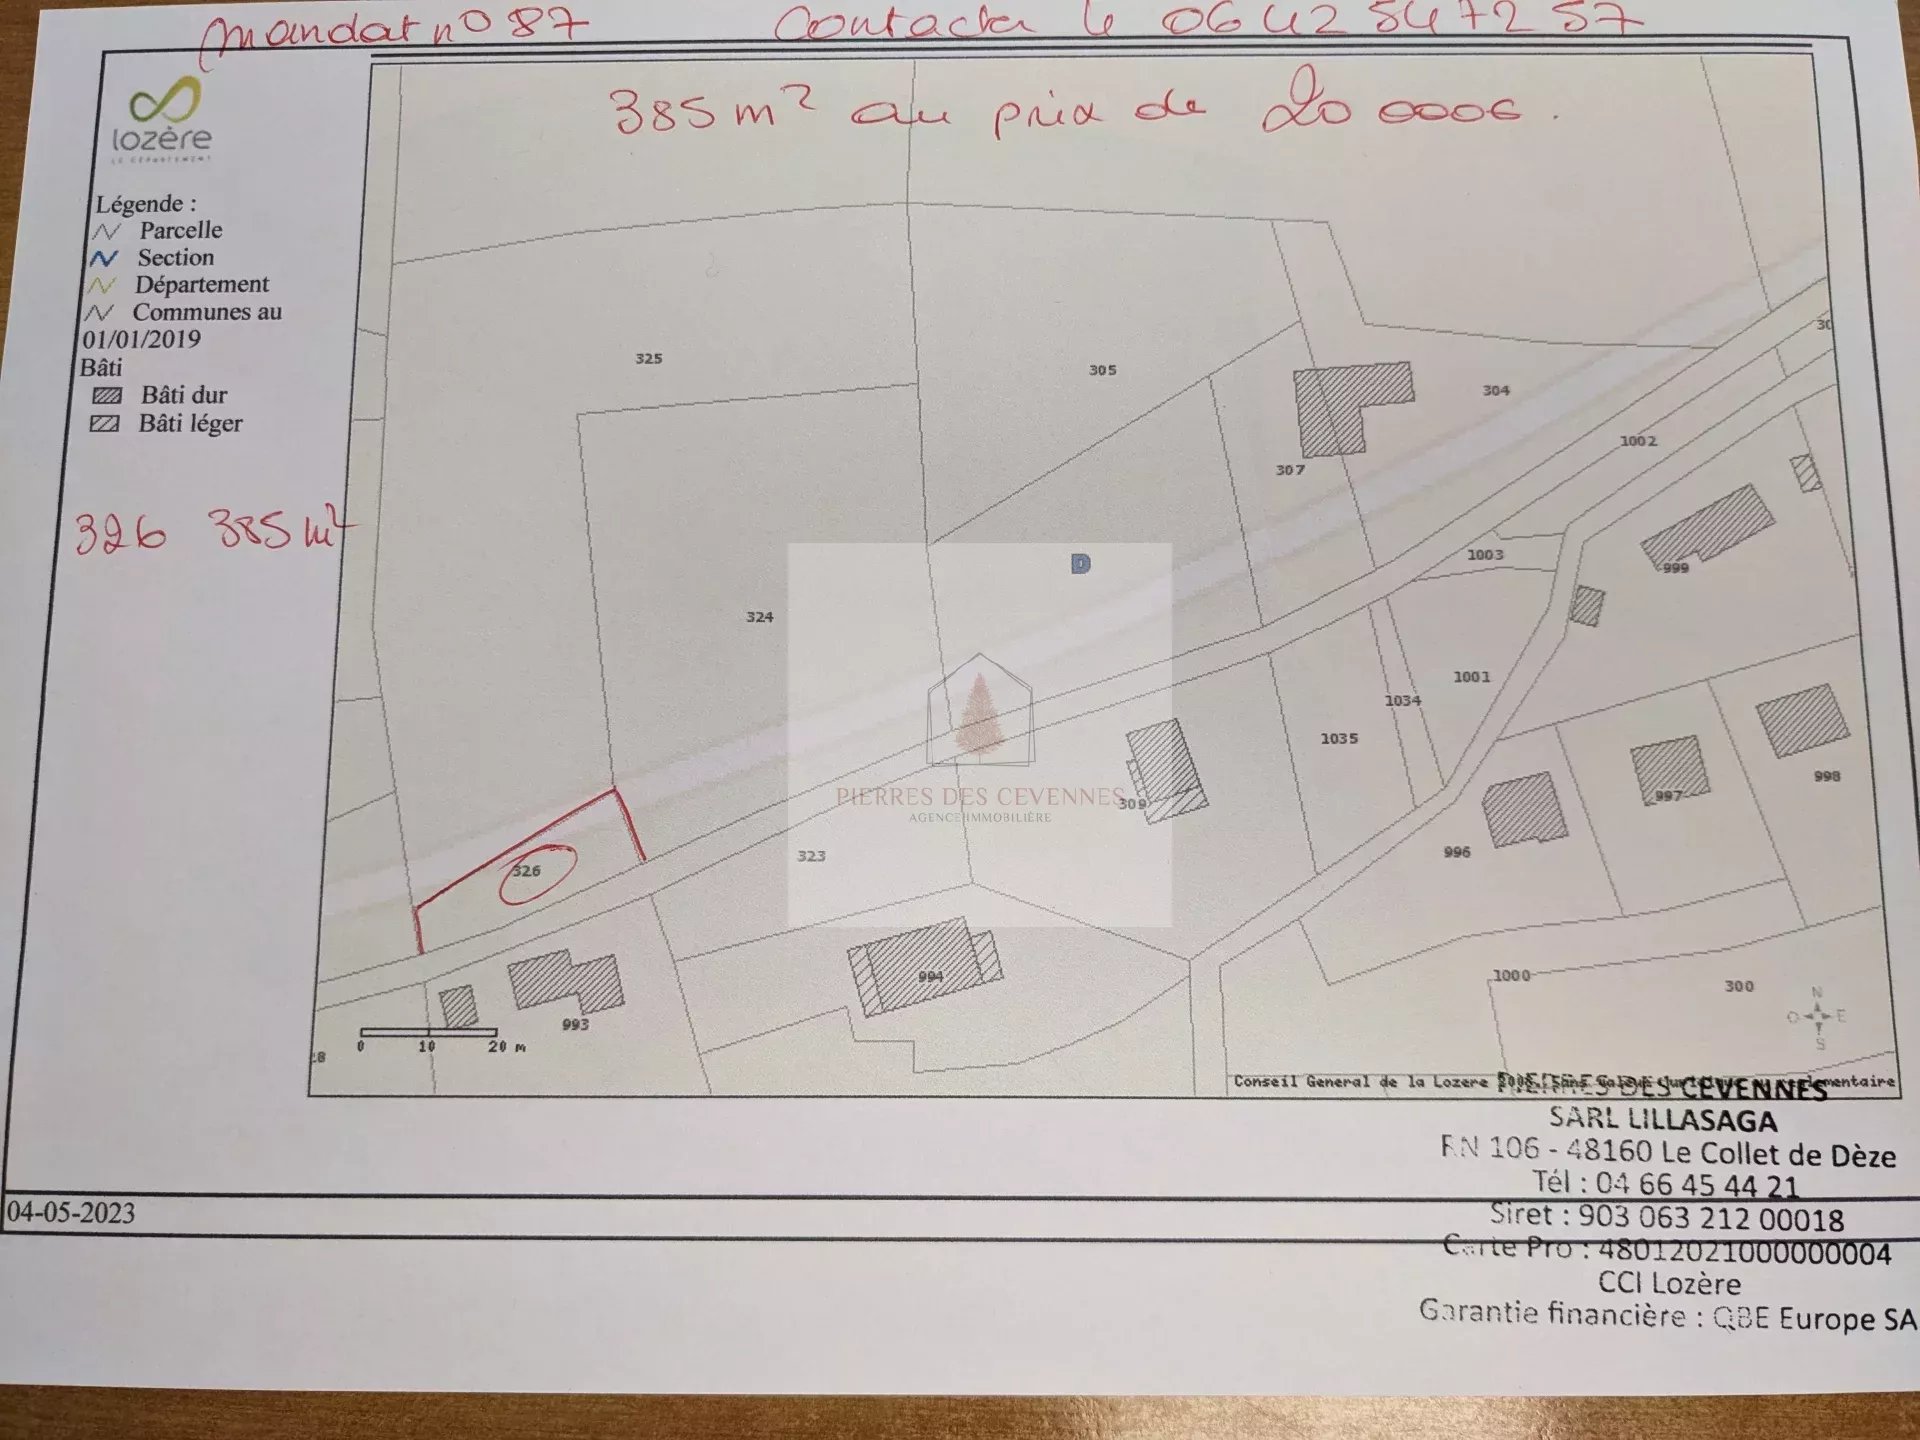 Mandat n° 87 Contacter le 06 42 54 72 57
385 m² au prix de 20 000€.
lozère
LE DÉPARTEMENT
Légende :
Parcelle
Section
Département
Communes au
01/01/2019
Bâti
Bâti dur
Bâti léger
326 385 m²
325
305
304
30
1002
307
1003
999
D
324
1001
1034
1035
998
997
309
996
PIERRES DES CEVENNES
AGENCE IMMOBILIÈRE
323
326
994
1000
300
993
N
O E
S
0 10 20 m
Conseil General de la Lozere
PIERRES DES CEVENNES
SARL LILLASAGA
RN 106 - 48160 Le Collet de Dèze
Tél : 04 66 45 44 21
04-05-2023
Siret : 903 063 212 00018
Carte Pro : 48012021000000004
CCI Lozère
Garantie financière : QBE Europe SA